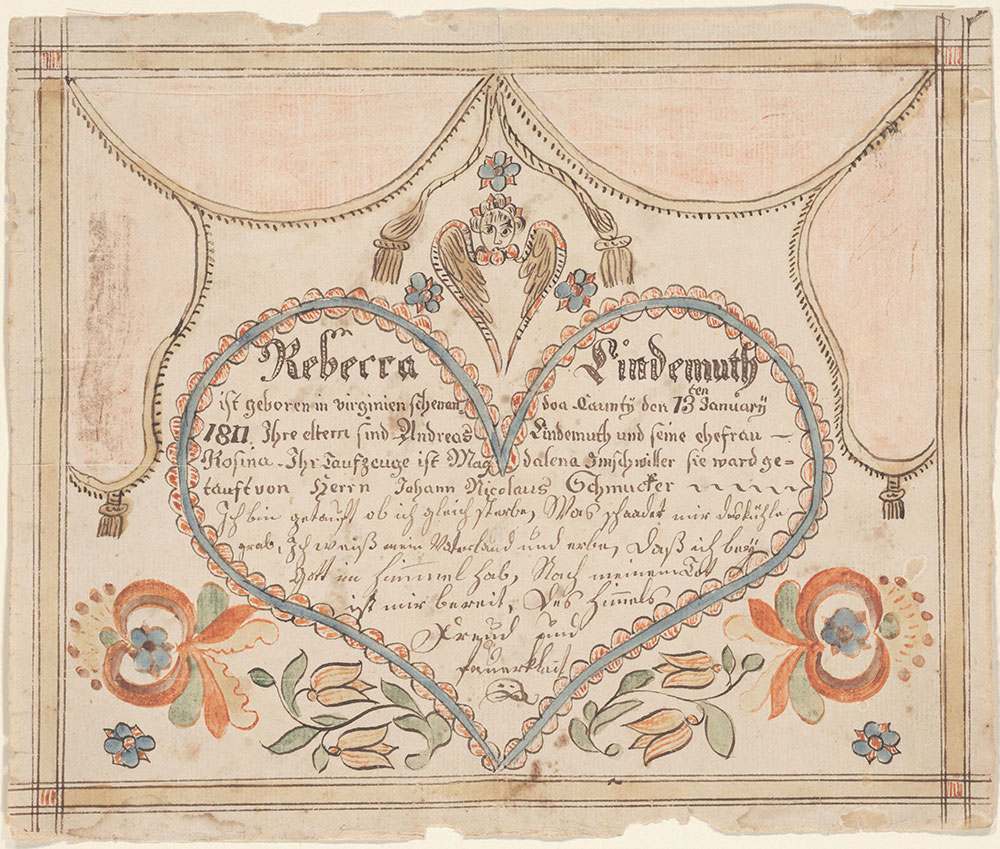 Rebecca Lindemuth
ist geboren in virginien schenan doa Caunty den 13ten January
1811. Ihre eltern sind Andreas Lindemuth und seine ehefrau —
Rosina. Ihr Taufzeuge ist Mag dalena Imschwiller sie ward ge=
tauft von Herrn Johann Nicolaus Schmucker
Ich bin getauft ob ich gleich sterbe, Was schadet mir das kühle
grab, Ich weiß mein Vaterland und erbe, Daß ich bey
Gott im Himmel hab, Nach meinem Tot
ist mir bereit, Des Himmels
Freud und